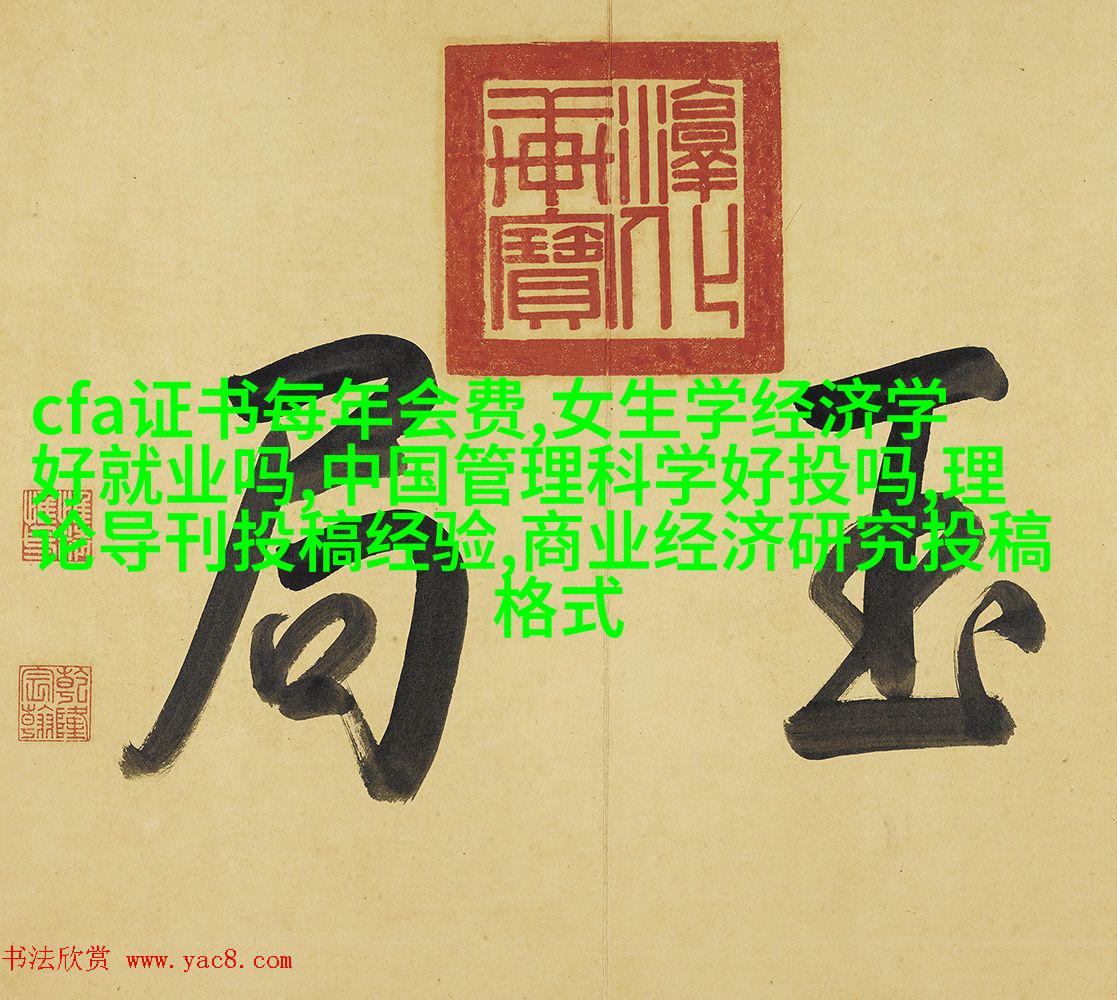 淳化
軒寶
玉局
cfa证书每年会费,女生学经济学
好就业吗,中国管理科学好投吗,理
论导刊投稿经验,商业经济研究投稿
格式
乾隆
宸翰
书法欣赏 www.yac8.com